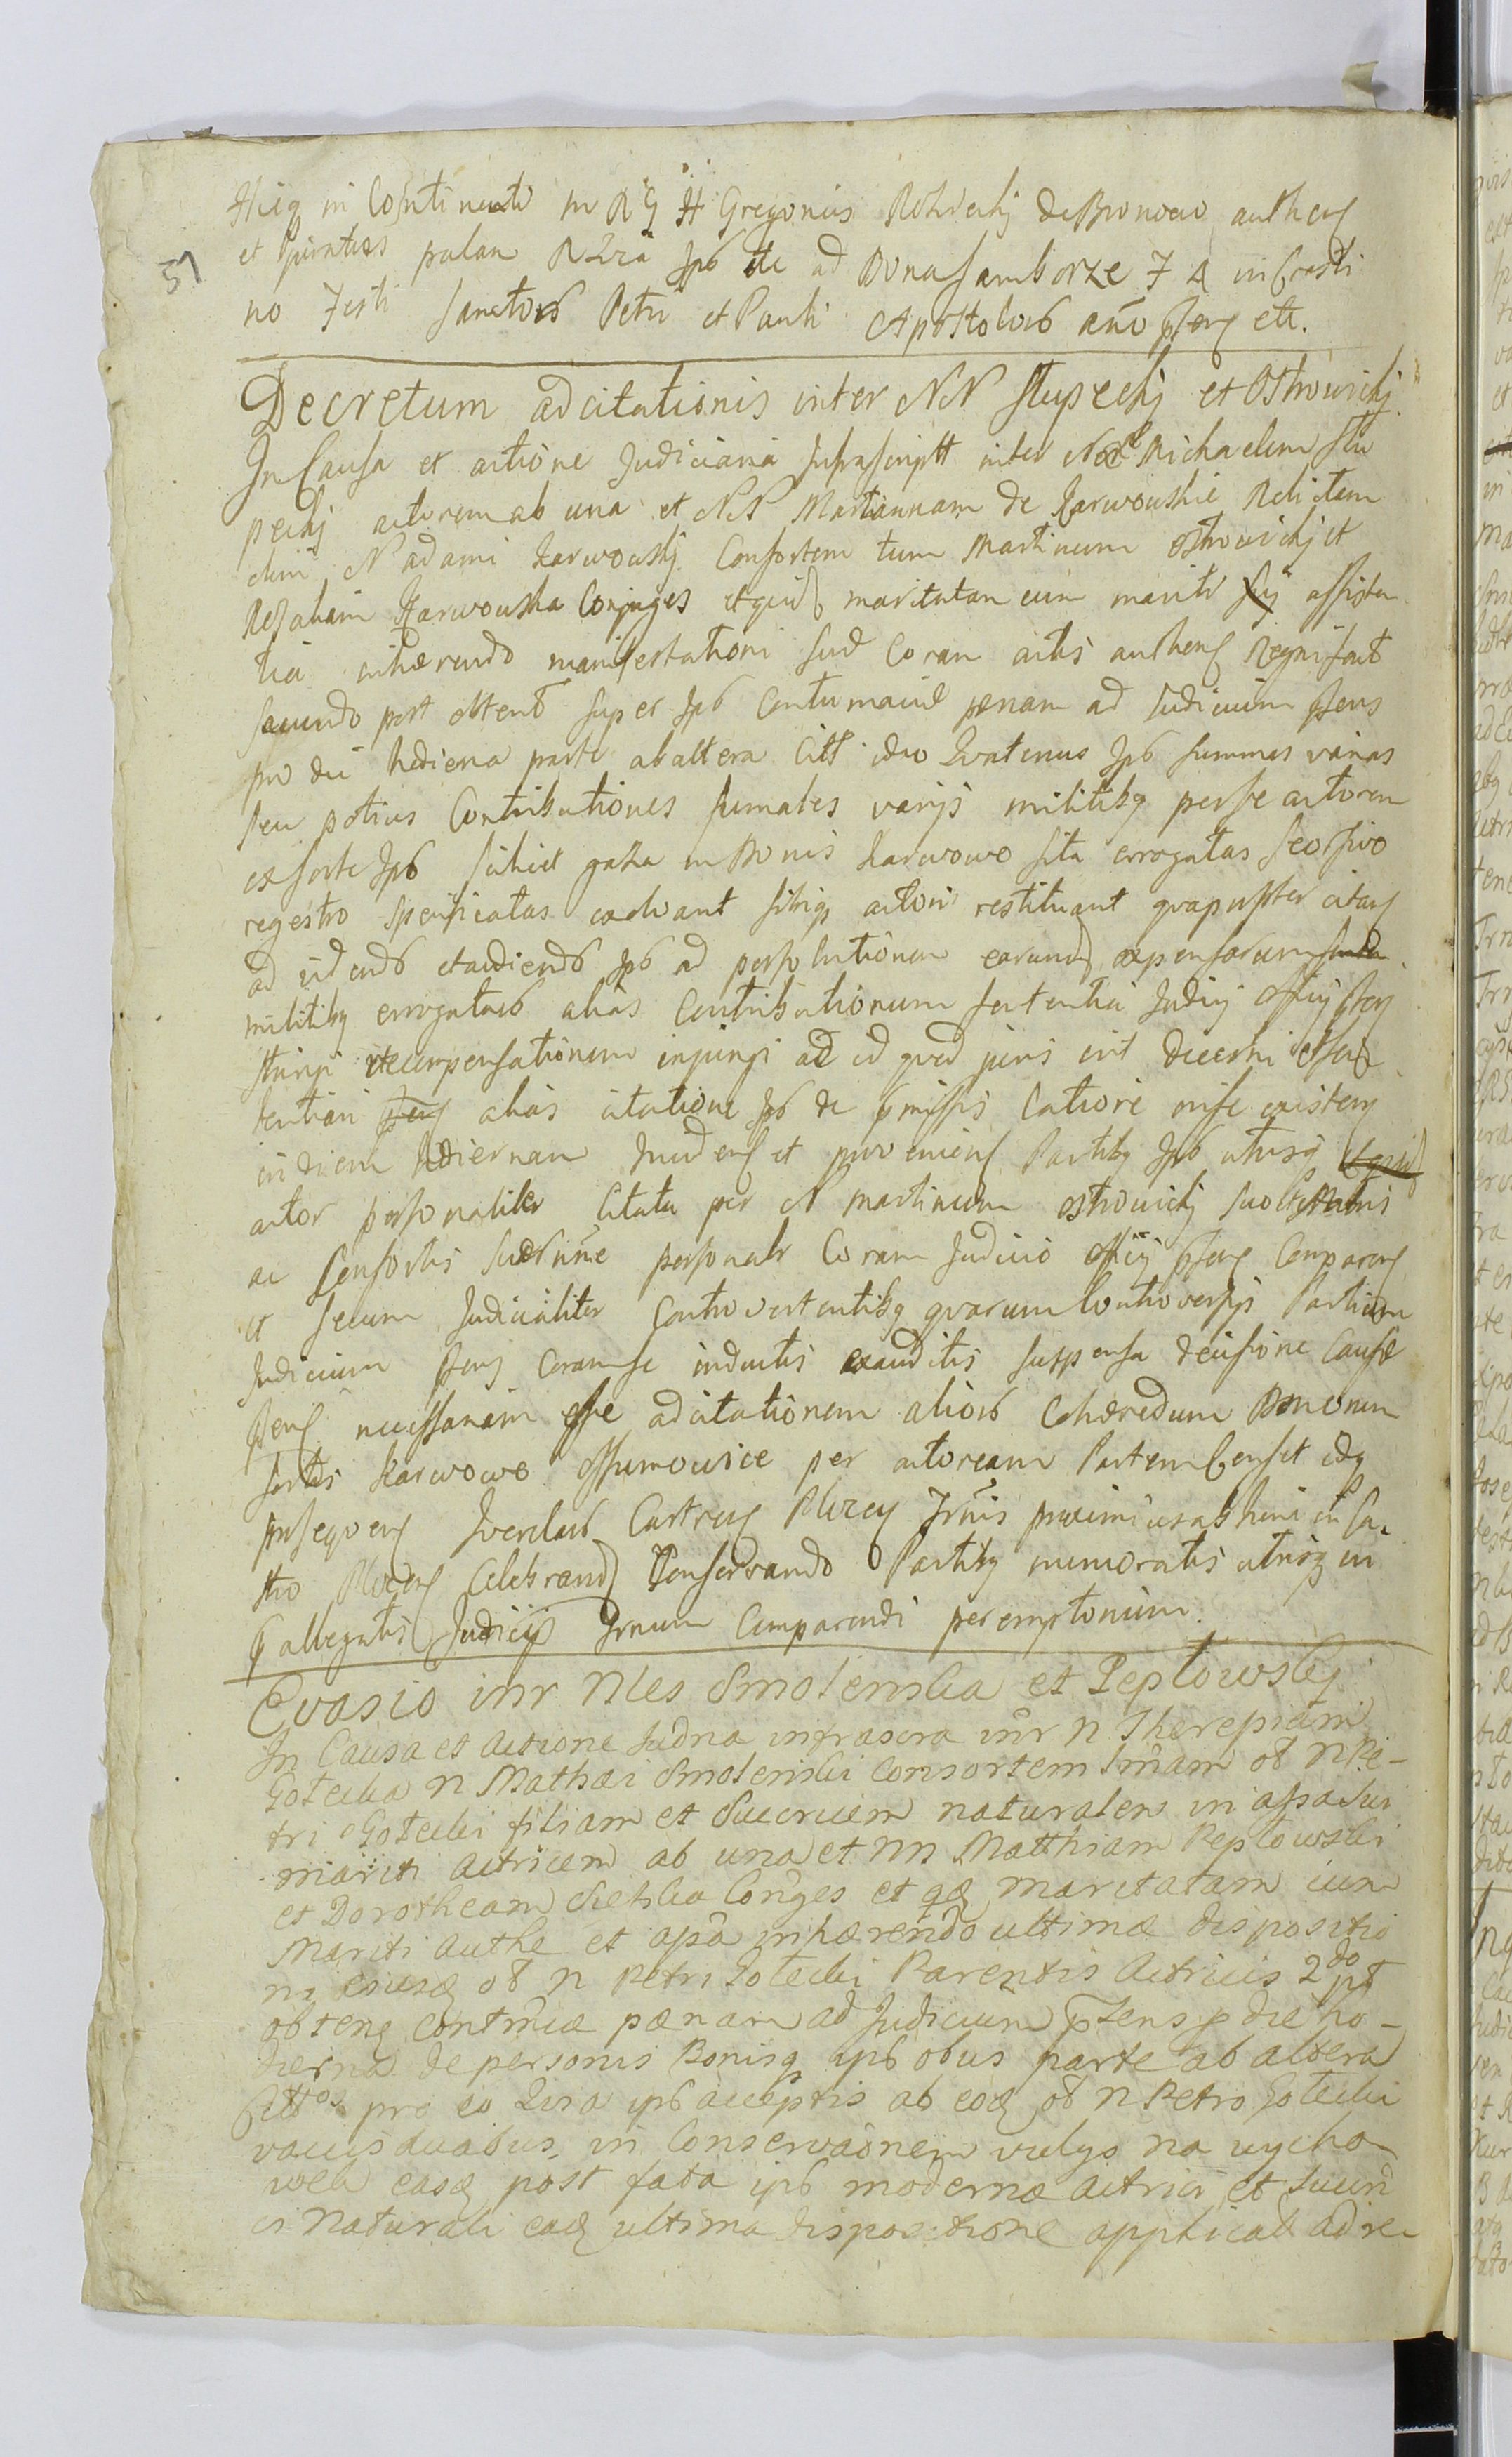 51
Hicq in Continenti M R G H Gregorius Rohrecky de Bronowo authen
et palam Rlra Ipb ete ad Bona Samborze F A in Crasti
no Festi Sanctorb Petri et Pauli Apostolorb año pten etc.
Decretum adcitationis inter NN Slupecky et Ostrowicky
In Causa et actione Judiciaria infrascriptt inter Nob Michaelem Slu
pecky actorem ab una et NN Mariannam de Karwowskie Relictam
olim N Adami Karwowsky Consortem tum Martinum Ostrowicky et
Rosaliam Karwowska Conjuges et quid maritatam cum mariti sui assisten
tia inhærendo manifestationi suæ Coram actis authen Regni
secundo post obtent super Ipb Contumaciæ pænam ad Judicium ptens
pro die hodierna parte ab altera Citt ideo Quatenus Ipb summas varias
seu potius Contributiones fumales varijs militibq per se actorem
ex sorte Ipb in Bonis Karwowo sita erogatas seorsivo
regestro specificatas exolvant sibiq actori restituant quapropter citan
ad videndb et audiendb Ipb ad persolutionem earund expensarum
militibq erogatarb alias Contributionum sententia Judicij officij pten
stringi recompensationem injungi ad id quod juris erit decerni et
tentiari alias citatione Ipb de pmissis latiore in se existen
in diem hodiernam inciden et provenien Partibq Ipb utrisq
actor personaliter Citata per N Martinum Ostrowicky suo et
ac Consortis suæ nñe personalr Coram Judicio officij pten Comparen
et secum Judicialiter Controvertentibq quarum Controversijs Partium
Judicium ptens coram se inductis exauditis suspensa decisione Causæ
pten necessariam esse adcitationem aliorb Cohæredum Bonorum
sortis Karwowo per actoream Partem Censet idq
pro sequen Querelarb Castren Plocen Trñis proximius ab hinc in Ca
stro Plocen Celebrand Conservando Partibq memoratis utrisq in
pallegatis Judicijs Trnum Comparendi peremptorium.
Evasio inr Nles Smolenska et Peptowsky
In Causa et Actione Judna infrascra intr N Therepiam
Gotecka N Mathæi Smolenski Consortem Tmam ob N Pe-
tri Gotecki filiam et Succricem naturalem in assa sui
mariti Actricem ab una et NN Matthiam Peptowski
et Dorotheam Sietska Conges et qd Maritatam cum
Mariti Authe et assa inhærendo ultimæ dispositio
ni ejusd ob N Petri Gotecki Parentis Actricis 2do pt
obten contmciæ pænam ad Judicium ptens p die ho-
dierna de personis Bonisq ipb obus parte ab altera
Cittos pro eo Quia ipb acceptis ab eod ob N Petro Gotecki
vaccis duabus in Conservaonem vulgo na wycho-
wek easd post fata ipb modernæ Actrici et Succri
ci Naturali ead ultima dispositione applicat ad re-